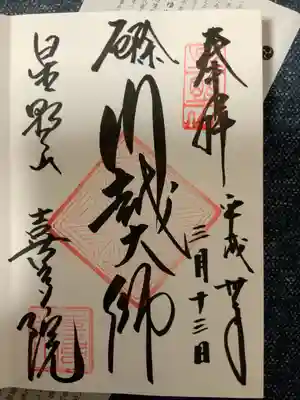 奉拝
平成年
三月十三日
厄除
川越大師
星野山
喜多院